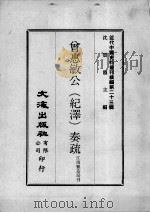 近代中國史料叢刊續編第二十三輯
沈雲龍主編
曾惠敏公(紀澤)奏疏
江南製造局刊
文海出版社有限公司印行